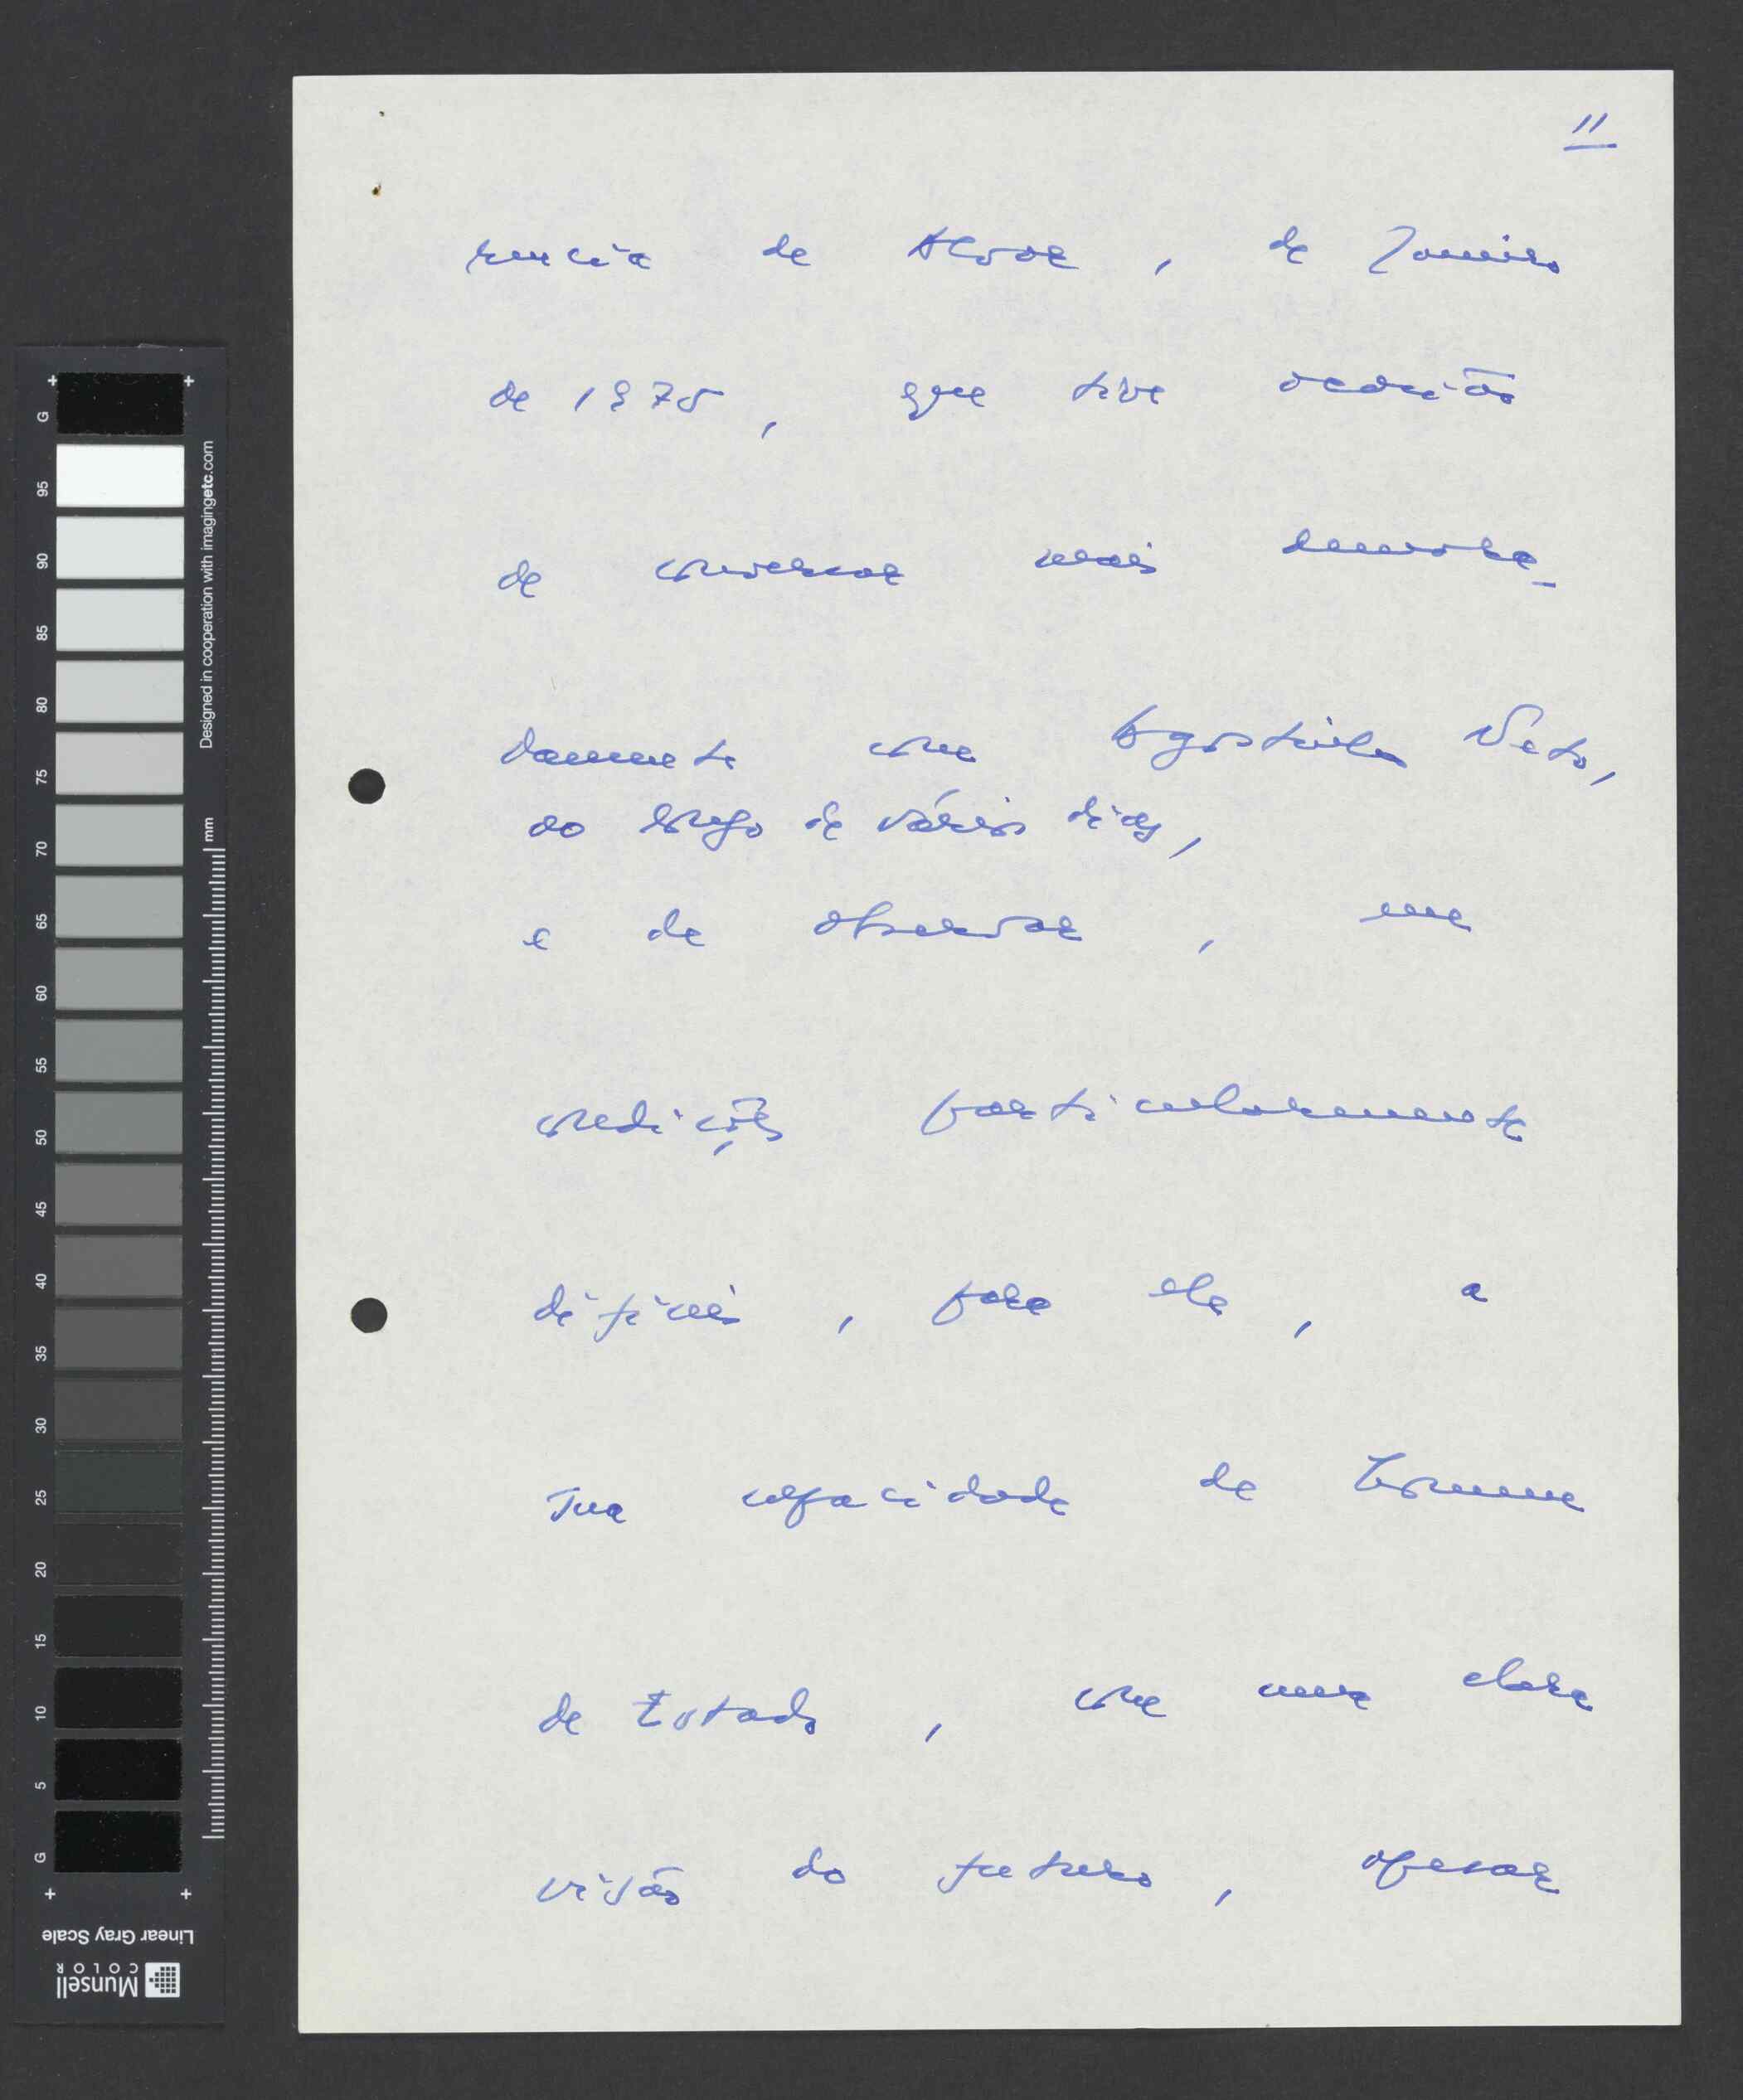 11
rencia de Alvor, de Janeiro
de 1975, que tive ocasião
de conversar mais demora-
damente com Agostinho Neto,
ao longo de vários dias,
e de observar, em
condições particularmente
difíceis, para ele, a
sua capacidade de homem
de Estado, com uma clara
visão do futuro, apesar
G
95
90
85
80
75
70
65
60
55
50
45
40
35
30
25
20
15
10
5
G
Designed in cooperation with imagingetc.com
mm
Linear Gray Scale
Munsell
COLOR